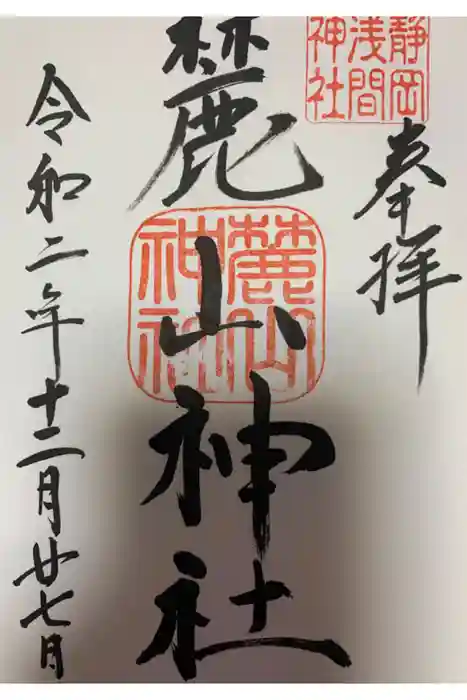 静岡
浅間
神社
奉拝
麓山神社
麓山
神社
令和二年十二月廿七日